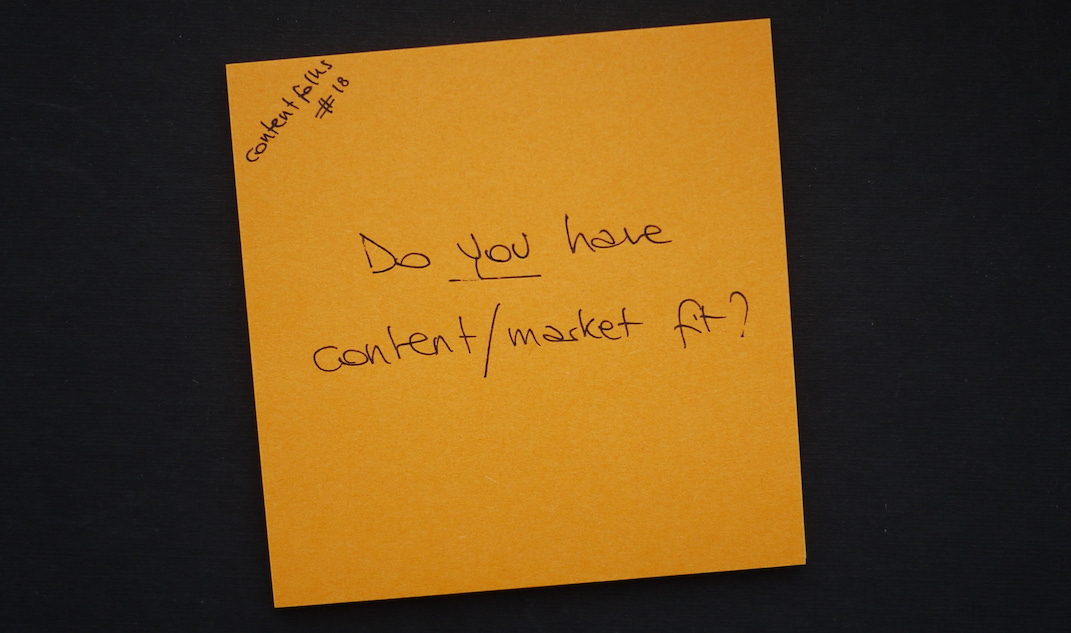 contentfolks
#18
Do you have
content/market fit?